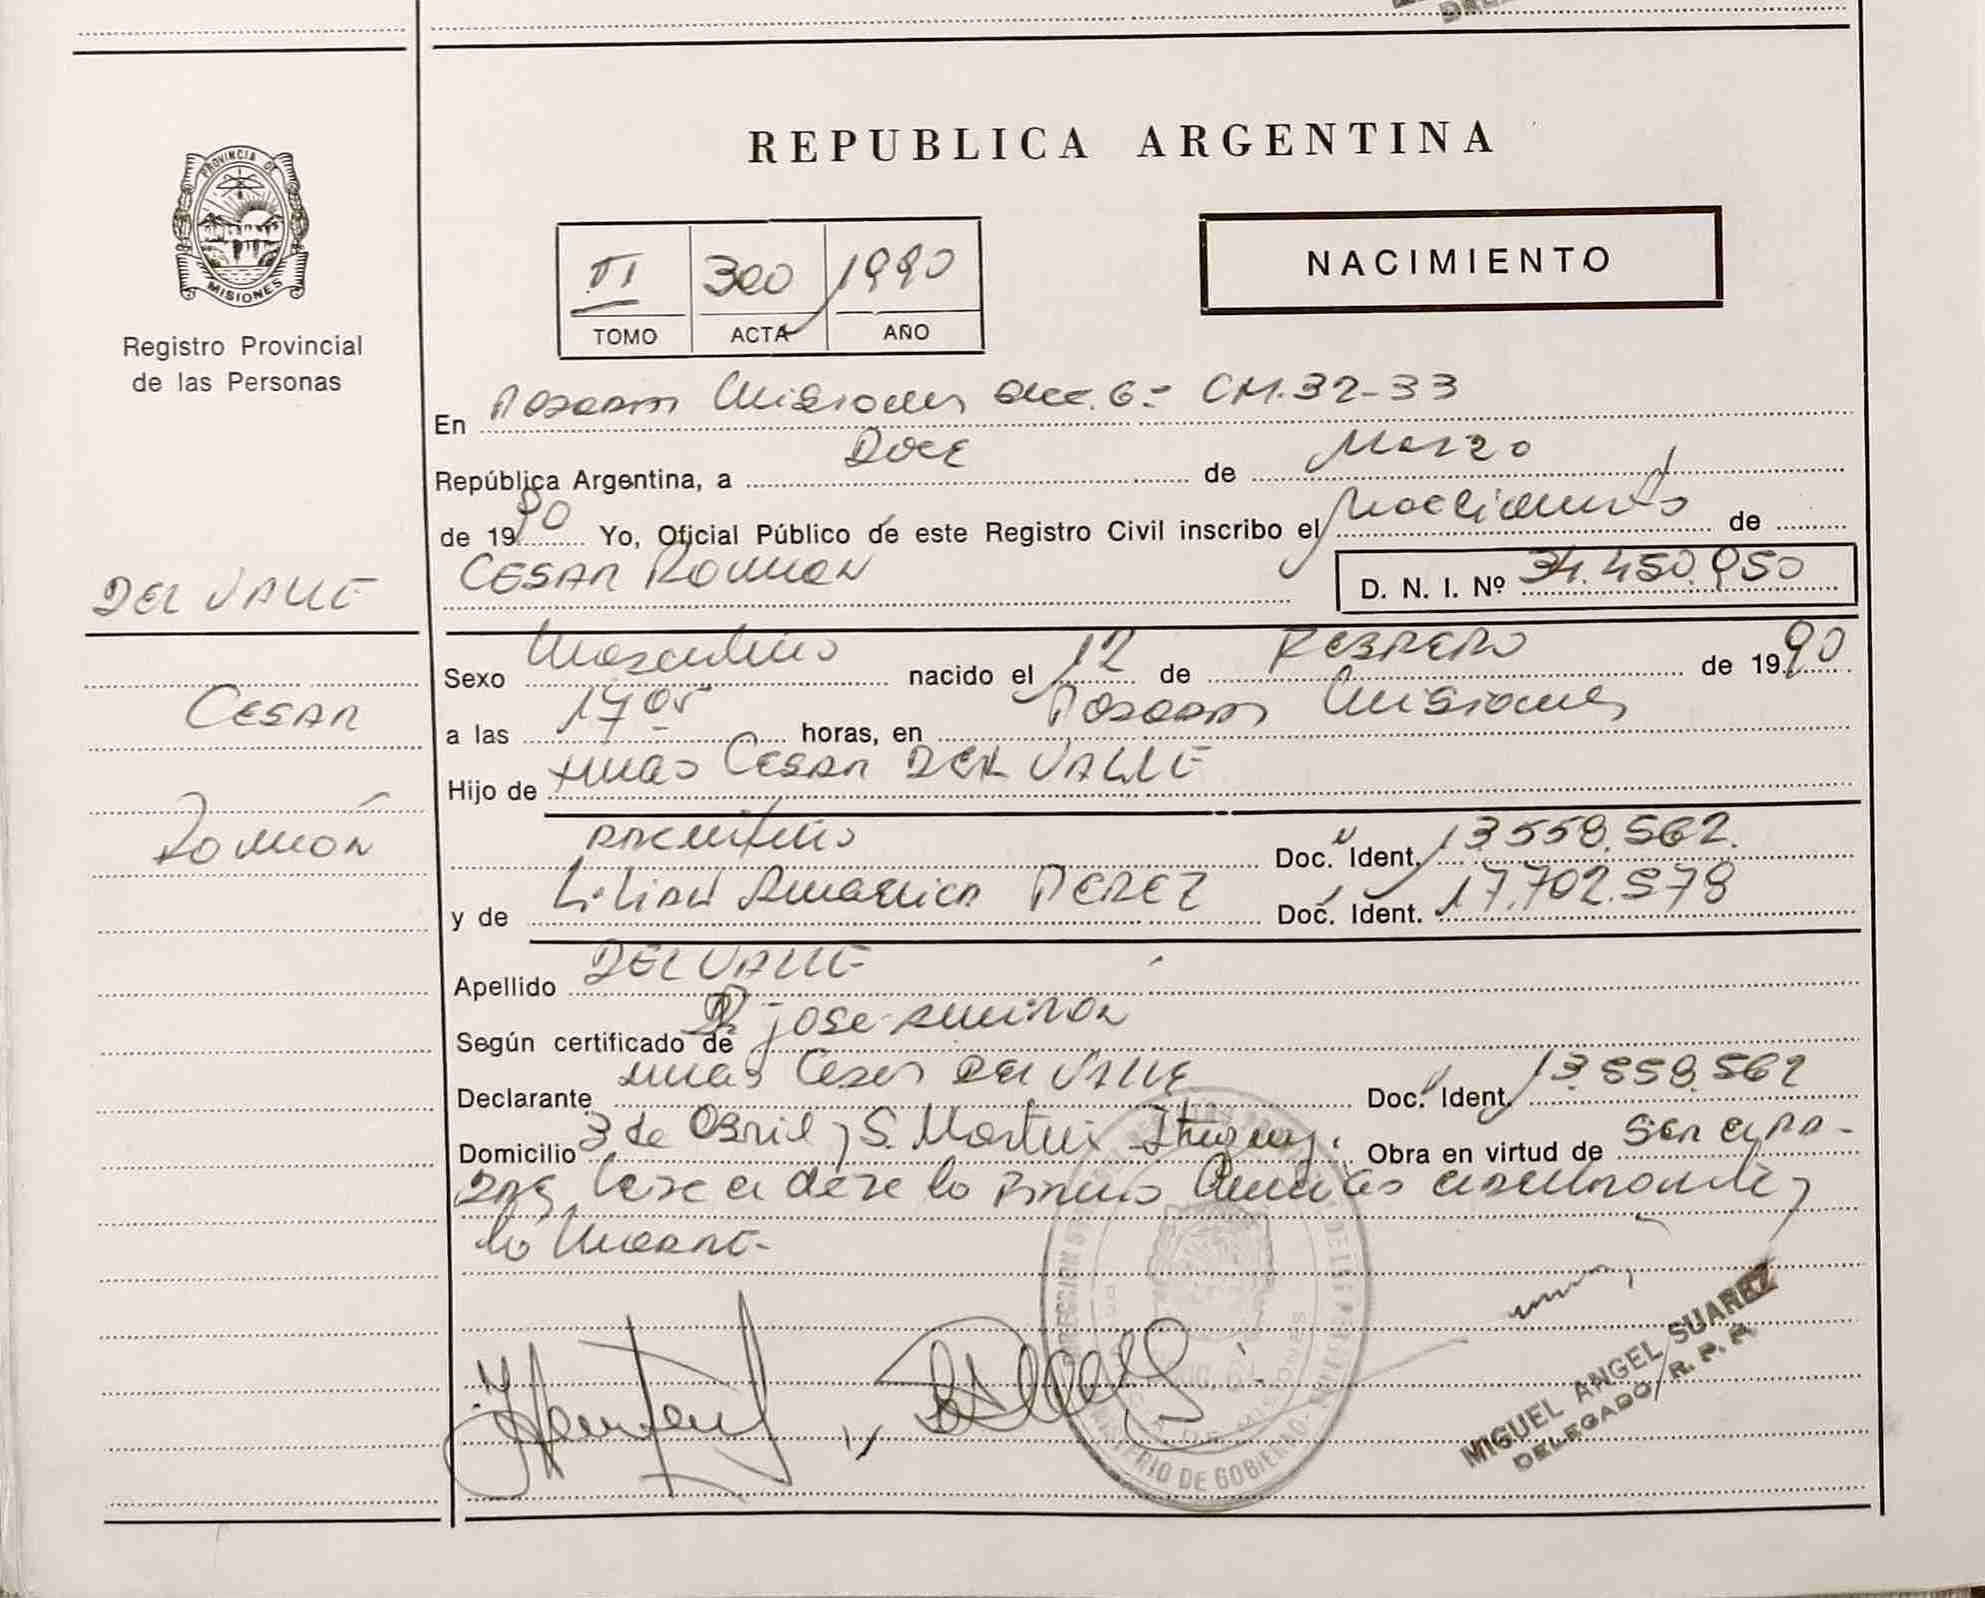 PROVINCIA DE
MISIONES
Registro Provincial
de las Personas
DEL VALLE
CESAR
Román
REPUBLICA ARGENTINA
NACIMIENTO
VI 300 1990
TOMO ACTA AÑO
En Posadas Misiones Secc. 6= CM.32-33
República Argentina, a Doce de Marzo
de 1990 Yo, Oficial Público de este Registro Civil inscribo el Nacimiento de
CESAR Roman D. N. I. Nº 34.450.950
Sexo Masculino nacido el 12 de FEBRERO de 1990
a las 17 05 horas, en Posadas Misiones
Hijo de CESAR DEL VALLE
ARGENTINO Doc. Ident. 13.559.562.
y de Lilian PEREZ Doc. Ident. 17.702.578
Apellido DEL VALLE
Según certificado de Dr JOSE
Declarante Cesar DEL VALLE Doc. Ident. 13.559.562
Domicilio 3 de Abril y S. Martin Obra en virtud de SER EL PA-
DRE
la MADRE-
MINISTERIO DE GOBIERNO
MIGUEL ANGEL SUAREZ
DELEGADO R. P. P.